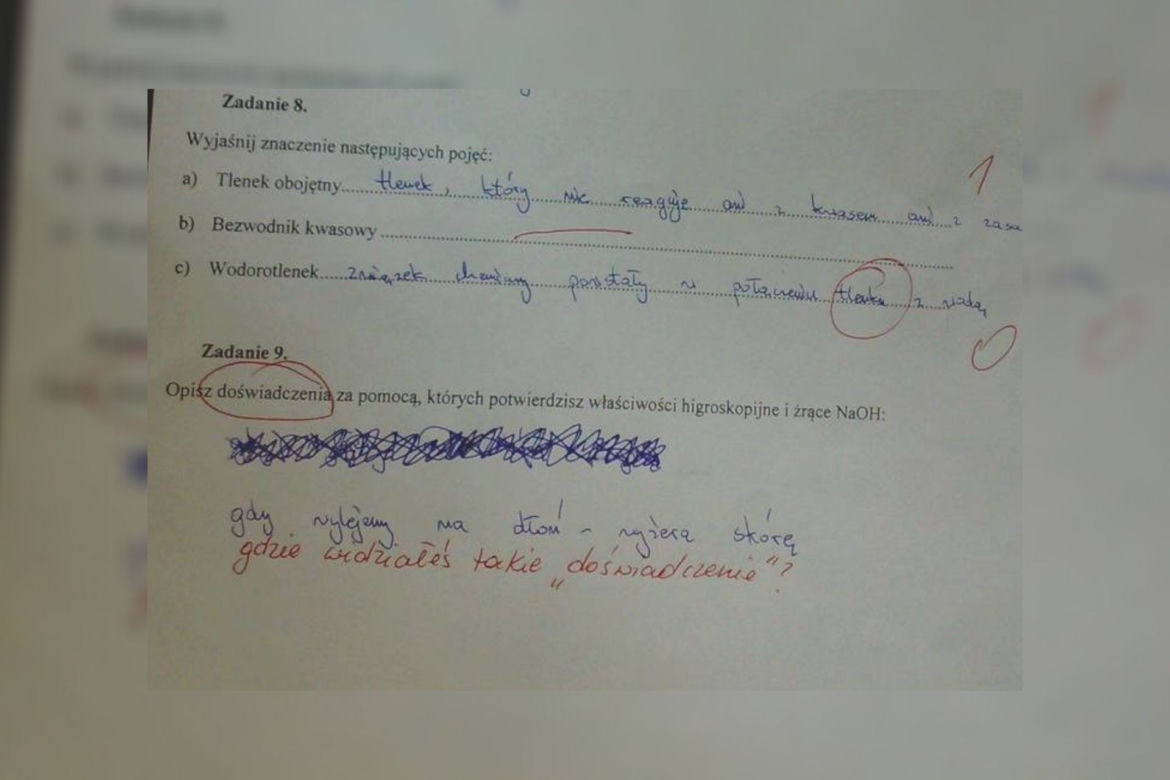 Zadanie 8.
Wyjaśnij znaczenie następujących pojęć:
1
a) Tlenek obojętny tlenek, który nie reaguje ani z kwasem ani z zasa
b) Bezwodnik kwasowy
c) Wodorotlenek związek chemiczny powstały w połączeniu tlenku z wodą
0
Zadanie 9.
Opisz doświadczenia za pomocą, których potwierdzisz właściwości higroskopijne i żrące NaOH:
gdy wylejemy na dłoń - wyżera skórę
gdzie widziałeś takie „doświadczenie"?